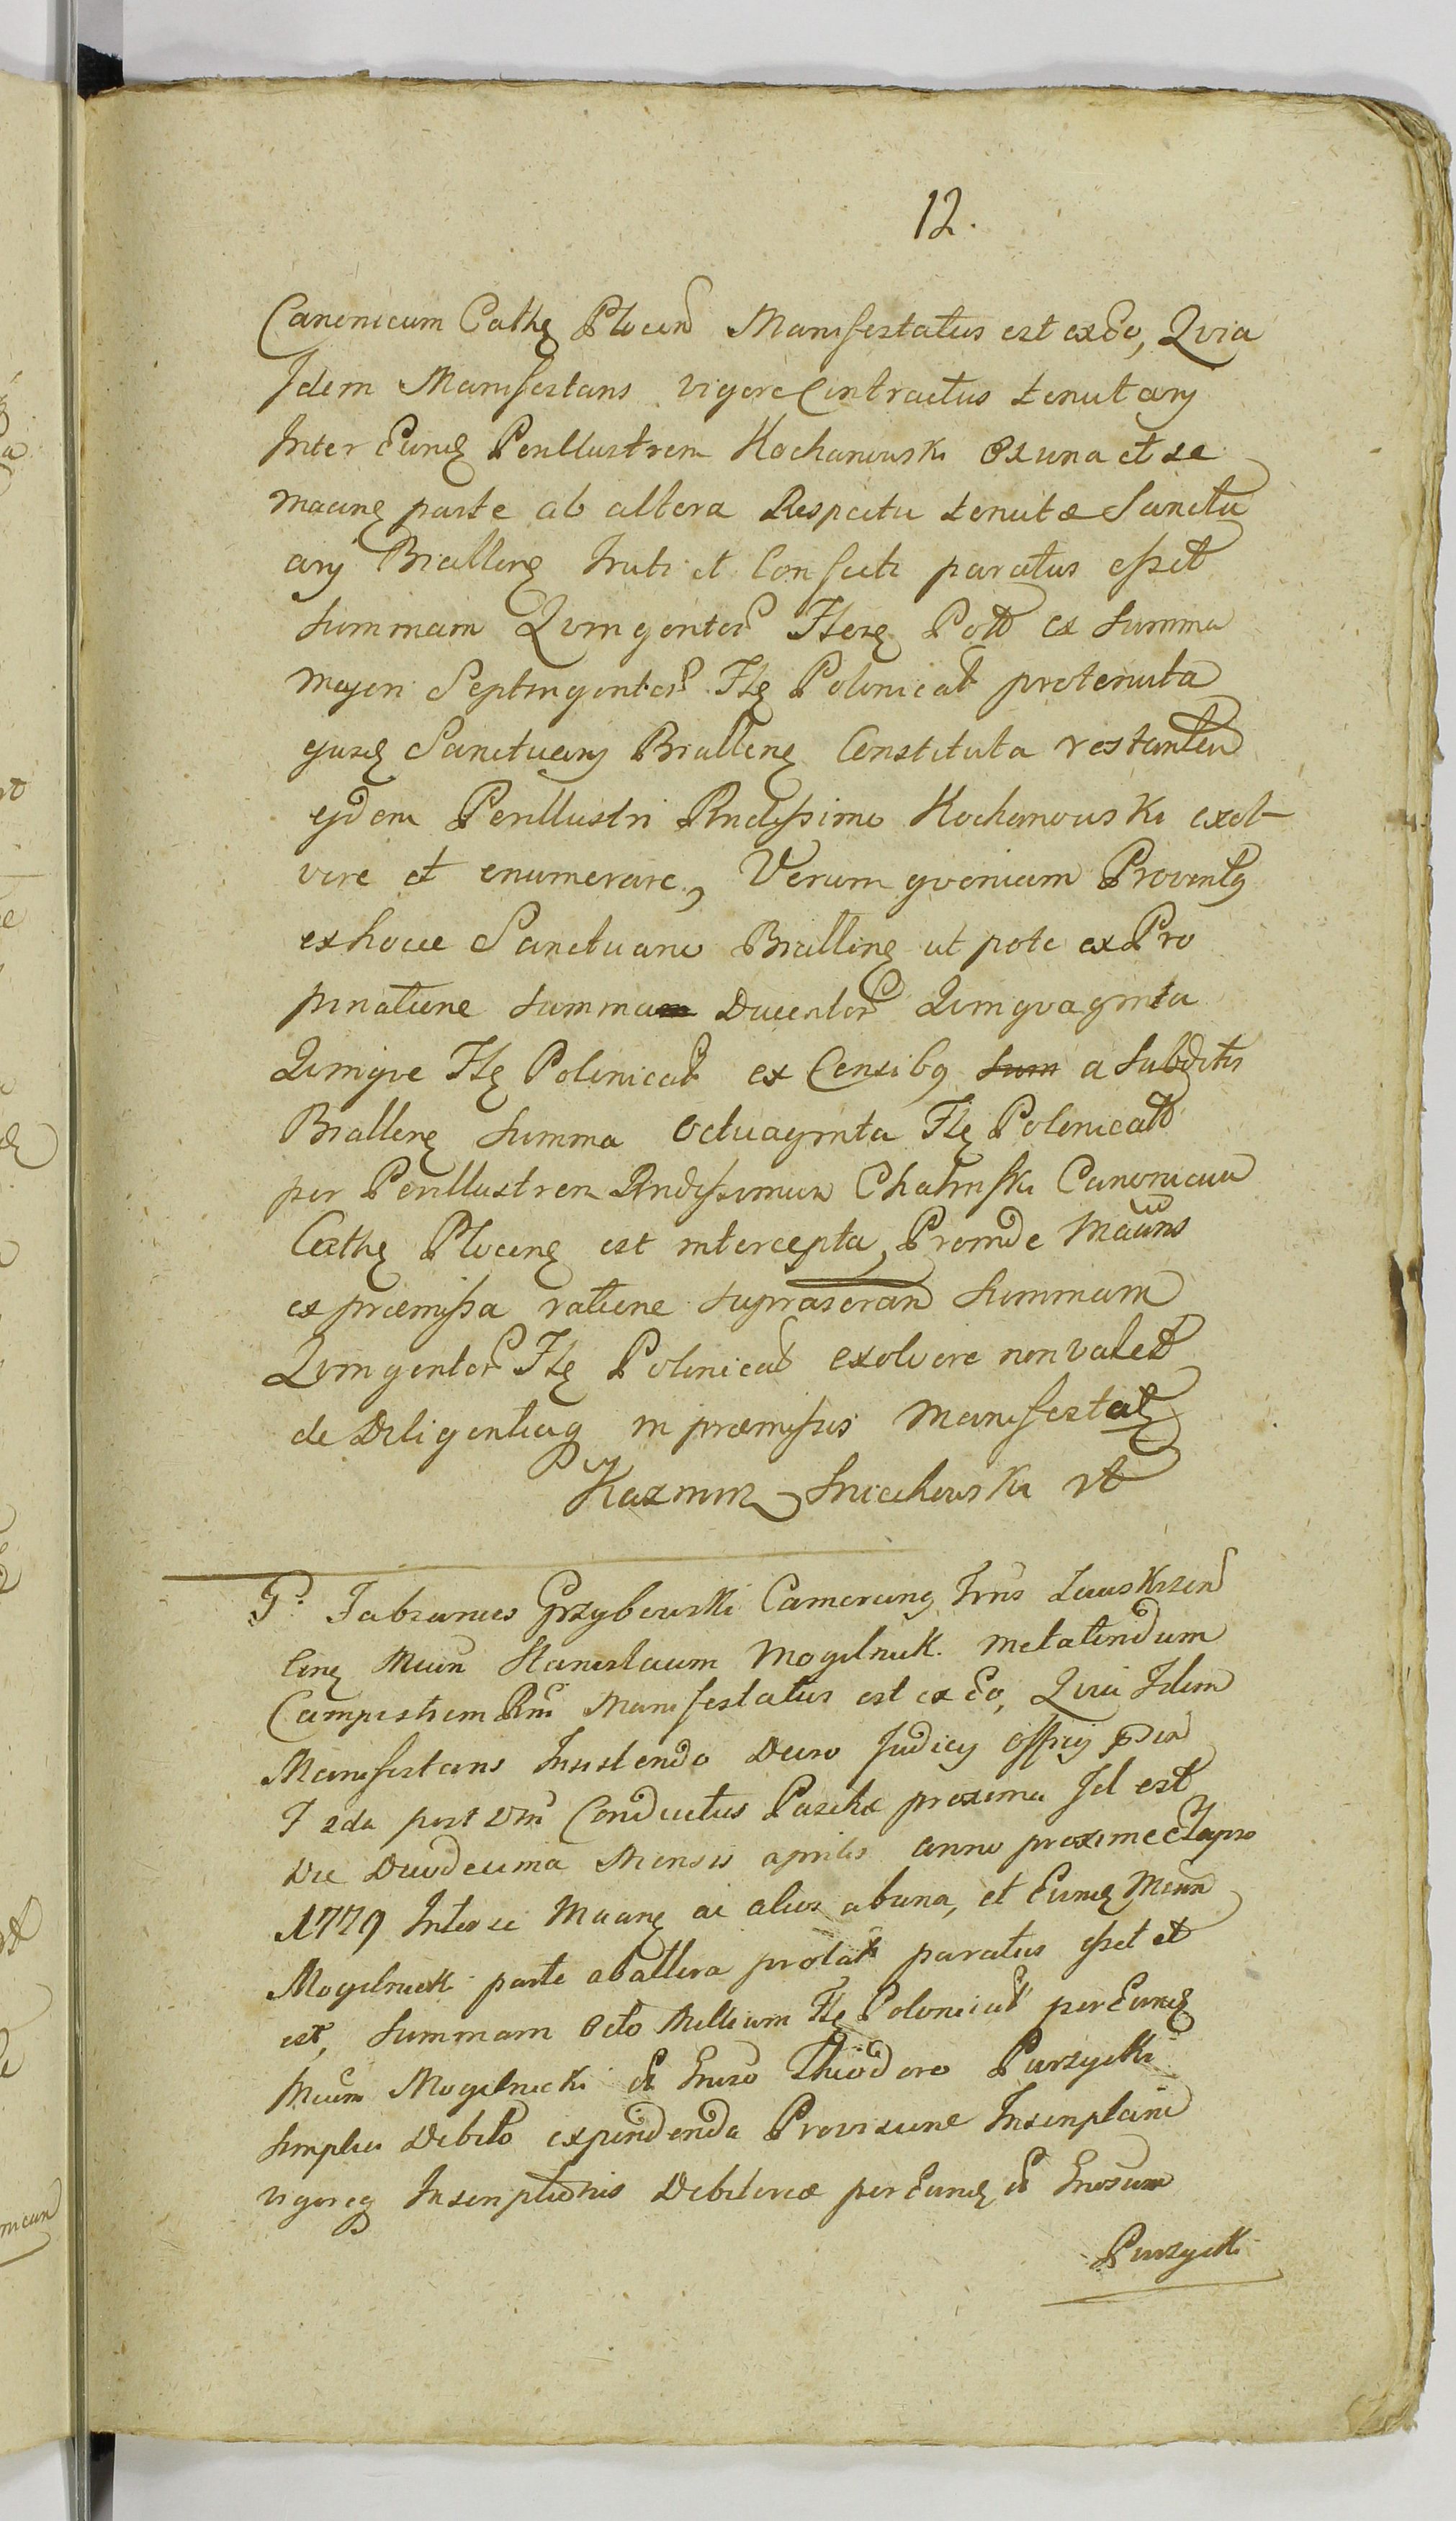 12.
Canonicum Cathę Plocen Manifestatus est ex Eo, Qvia
Idem Manifestans vigore Contractus tenutarij
Inter Eundę Perillustrem Kochanowski ex una et se
maanę parte ab altera Respectu tenutæ Sanctu
arij Biallenę Initi et Confecti paratus esset
Summam Qvingentor Flenę Poll ex Summa
majori Septingentor Flę Polonical pro tenuta
ejusdę Sanctuarij Biallenę Constituta restanten
ejdem Perillustri Rndissimo Kochanowski exol-
vere et enumerare, Verum qvoniam Proventq
ex hocce Sanctuario Biallenę ut pote ex Pro
pinatione Summam Ducentor Qvinqvaginta
Qvinqve Flę Polonical ex Censibq Sum a Subditis
Biallenę Summa Octuaginta Flę Polonicall
per Perillustrem Rndissimum Chalinski Canonicum
Cathę Plocenę est intercepta, Proinde Maans
ex præmissa ratione suprascran Summam
Qvingentor Flę Polonical exolvere non valet
de Diligentiaq in præmissis Manifestatę
Kazimirz Sniechowski
G. Fabianus Grzybowski Camerarię
Cirę Mcum Stanislaum Mogilnick.
Campestrem Rni Manifestatus est ex Eo, Qvia Idem
Manifestans Insistendo Decro Judicij officij
F 2da post Dni Conductus Paschæ proxima Id est
Die Duodecima Mensis Aprilis anno proxime Elapso
1779 Inter se Maanę ac alios ab una, et Eundę
Mogilnicki parte ab altera prolato paratus esset et
est, Summam Octo Millium Flę Polonical per Eundę
Mcum Mogilnicki Theodoro Purzycki
simplici Debito expendenda Provisione Inscriptam
vigoreq Inscriptionis Debitoriæ per Eundę
Purzycki